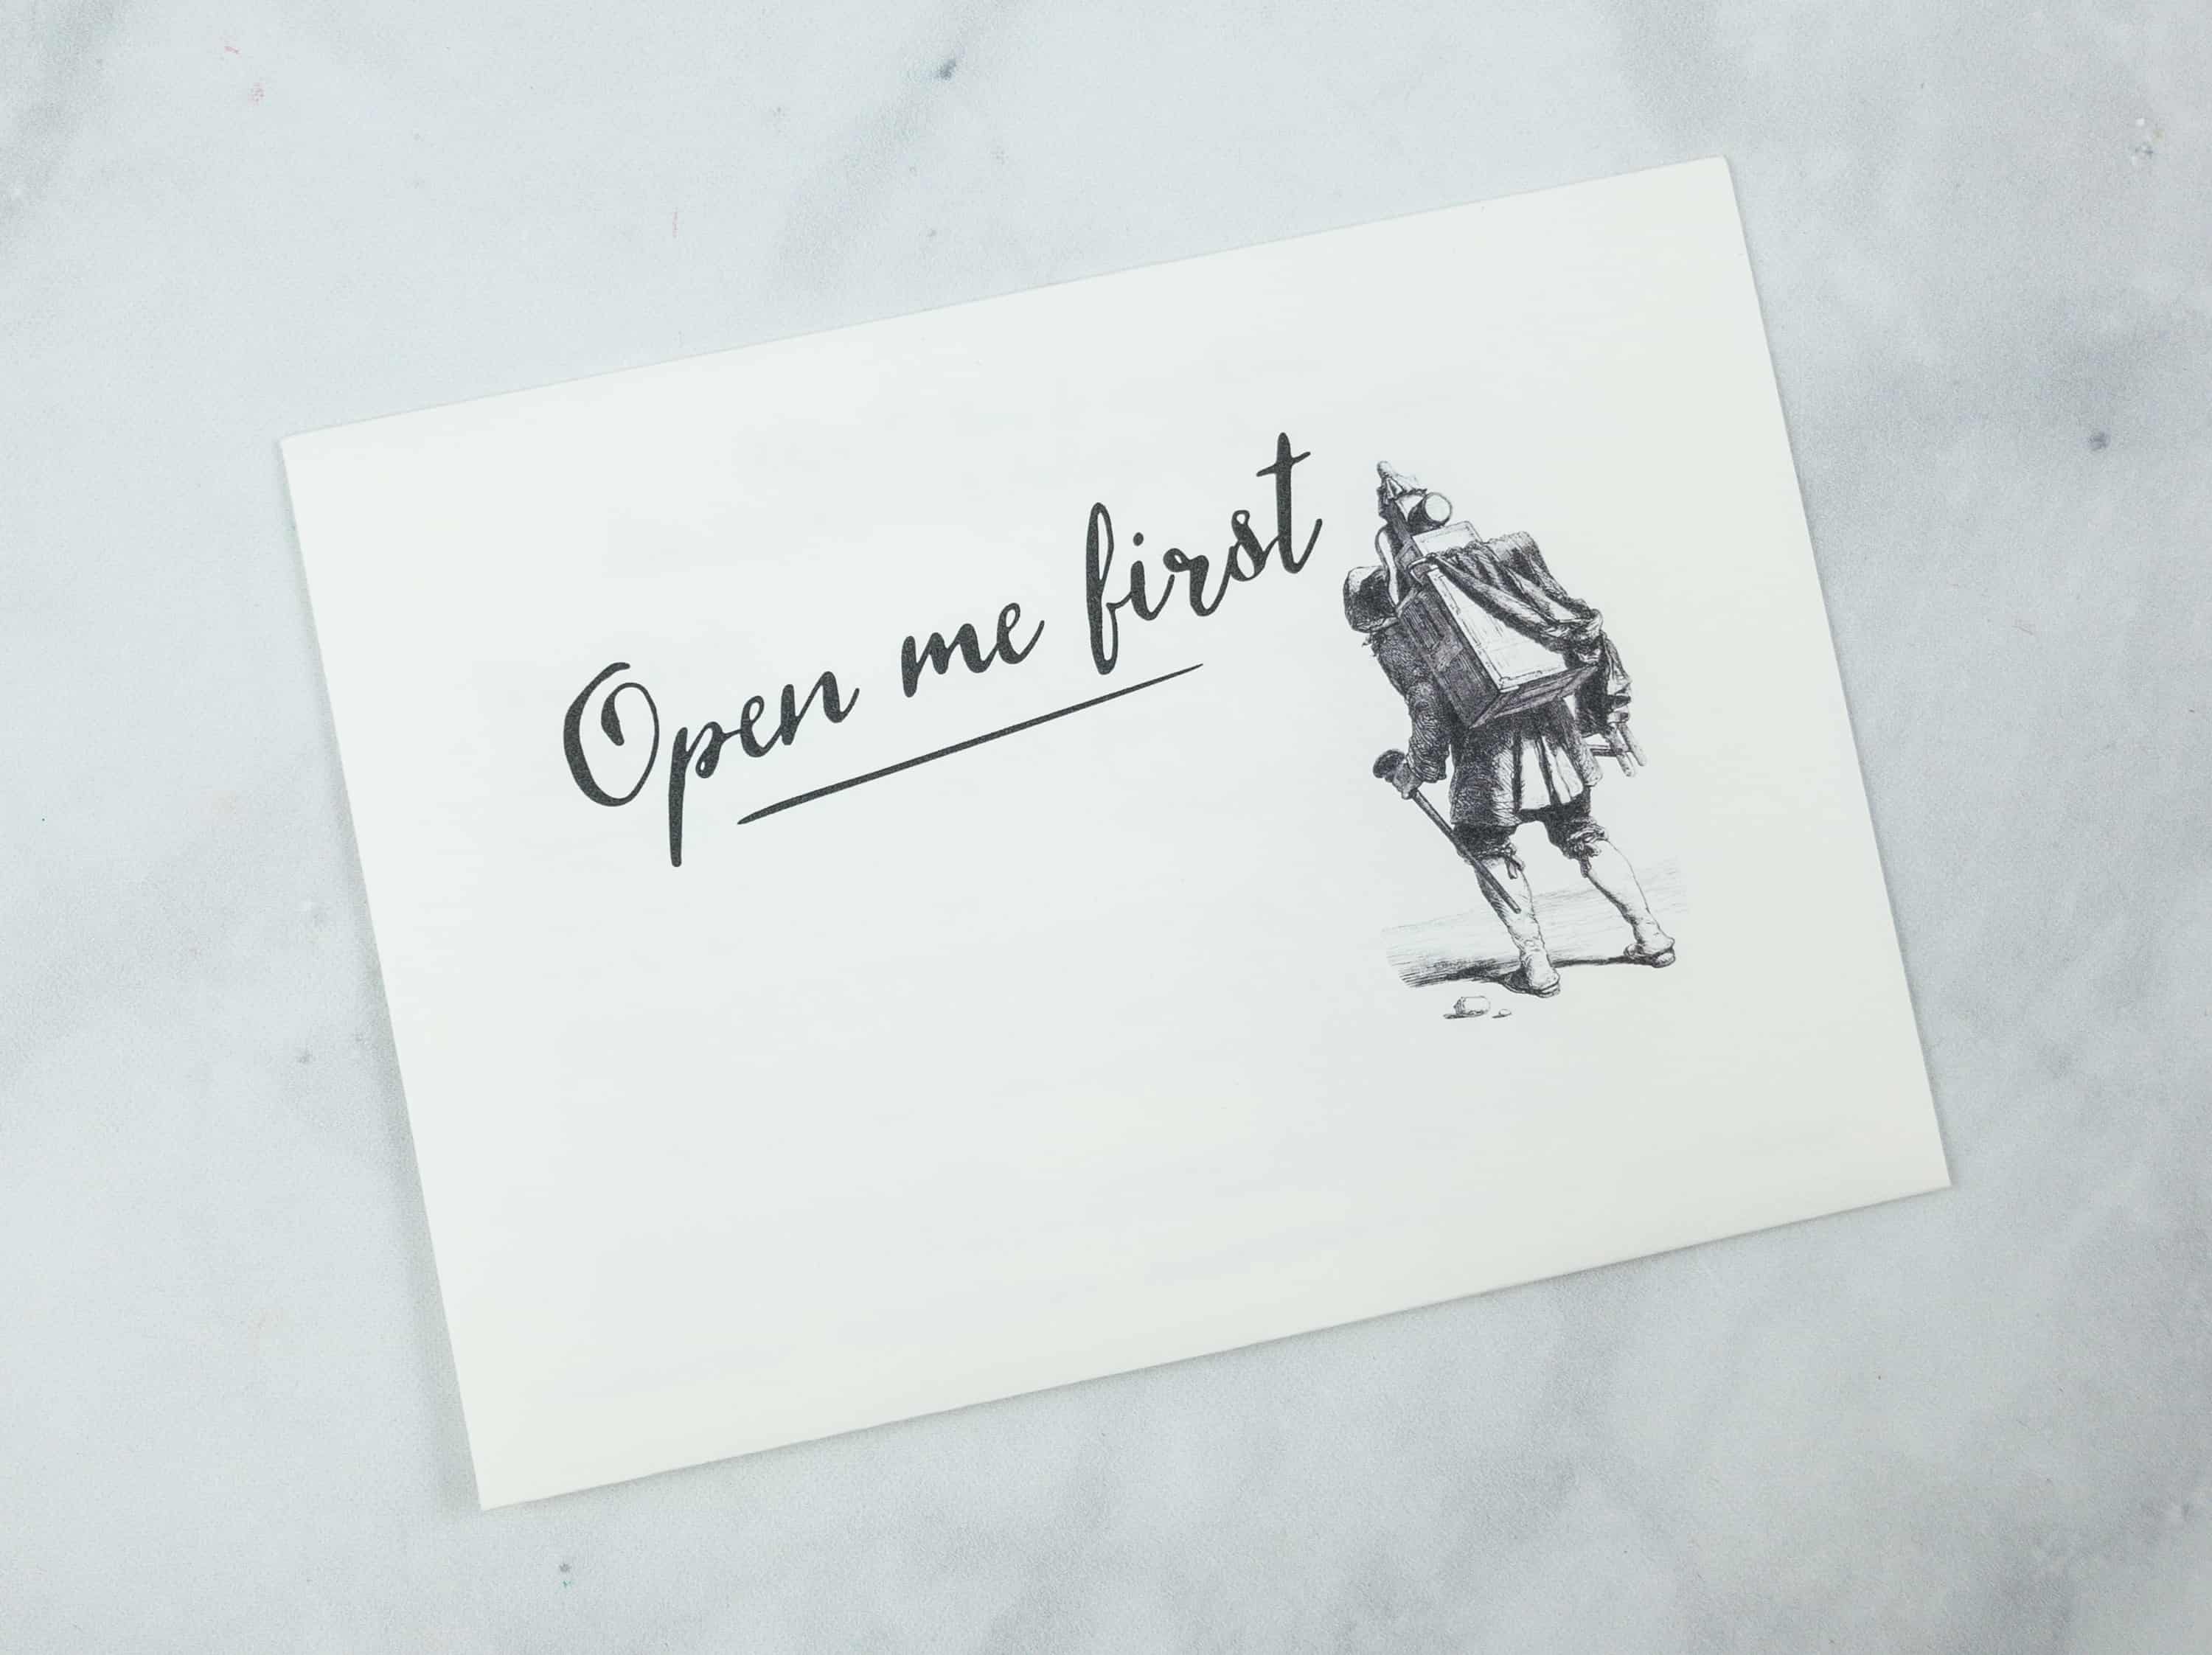 Open me first